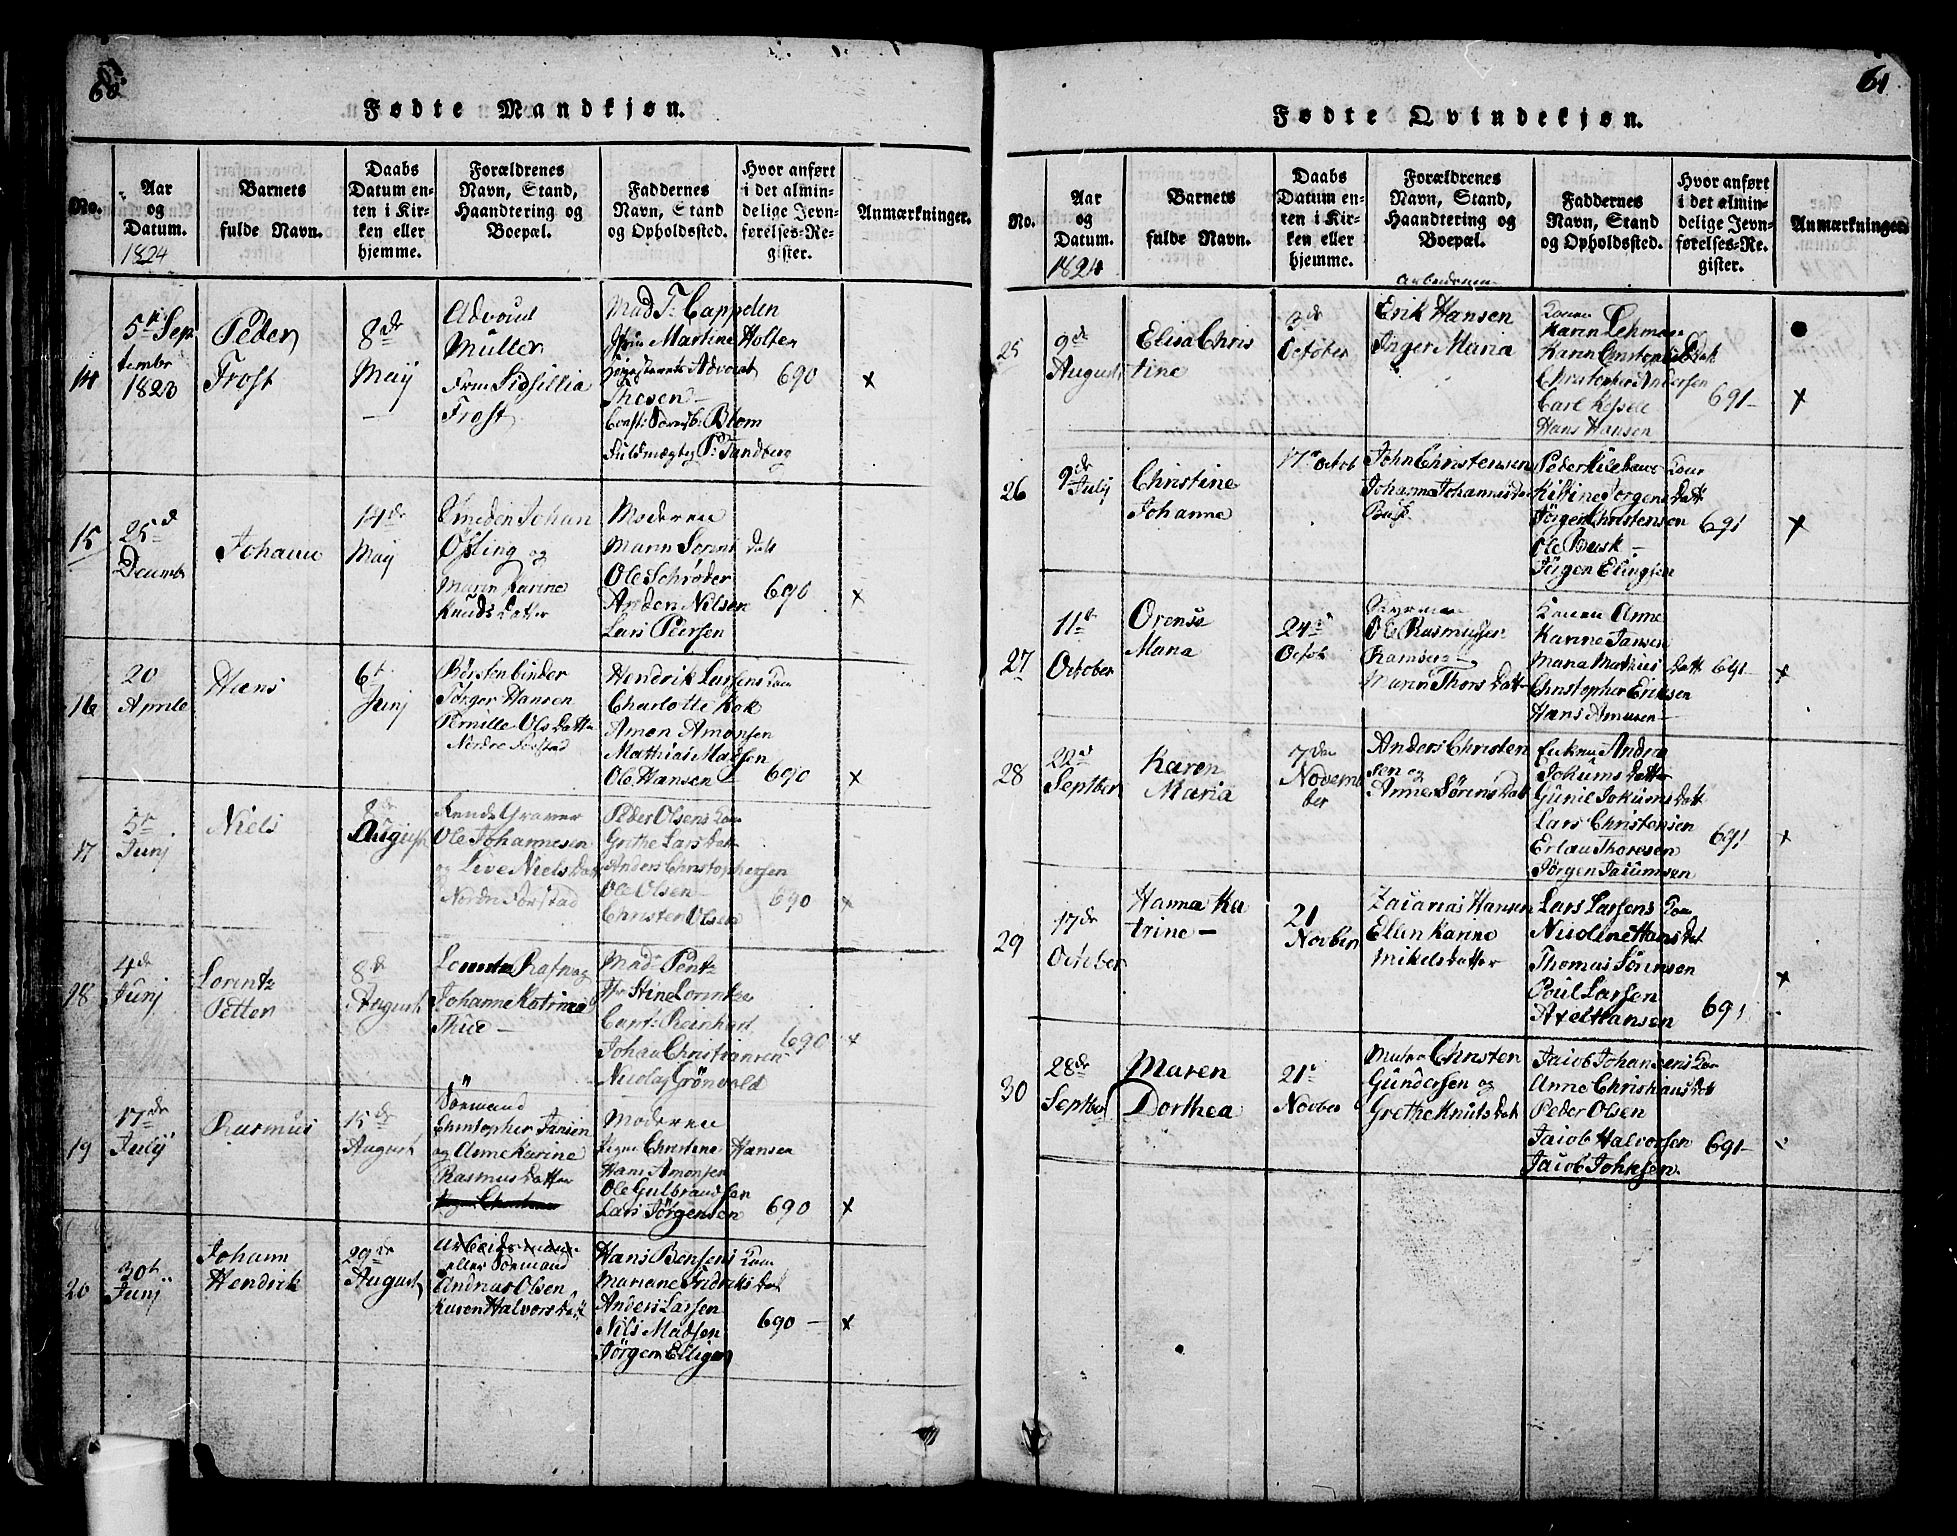 60
Fødte Mandkjøn.
No.
Aar
og
Datum.
1824
Barnets
fulde Navn.
Daabs
Datum en-
ten i Kir-
ken eller
hjemme.
Forældrenes
Navn, Stand,
Haandtering og
Boepæl.
Faddernes
Navn, Stand
og Opholdssted.
Hvor anført
i det almin-
delige Jevn-
førelses-Re-
gister.
Anmærkninger.
14
5te Sep
tembr
1823
Peder
Frost
8de
Maij
Advocat
Müller
Frue Sidsillia
Frost
Mad T: Cappelen
Martine Holter
Advocat
Thesen
Blom
Fuldmægtig P: Tandberg
690
x
15
25d
Decembr
Johann
14de
Maij
Smeden Johan
Östling og
Maren Karine
Knuds datter
Moderen
Mann Sörens datt
Ole Schrøder
Anden Nilsen
Lars Peersen
690
x
16
20
Aprile
Hans
6t
Junj
Børstenbinder
Sørger Hansen
Pernille Olsdatter
Nordre Forstad
Hendrik Larsens Kone
Charlotte Kok
Amon Amonsen
Mathias Madsen
Ole Hansen
690
x
17
5te
Junj
Niels
8de
August
Rendegraver
Ole Johannesen
og Live Niels dat
Nordre Forstad
Peder Olsens Kone
Grethe Lars dat
Anders Christophersen
Ole Olsen
Christen Olsen
690
x
18
4de
Junj
Lorentz
Petter
8de
August
Lorentz Rafn og
Johanne Katrine
Thue
Mad Pentz
Stine Lorentzen
Reinhart
Johan Christiansen
Nicolaj Grönvold
690
x
19
17de
Julij
Rasmus
15de
August
Sørmand
Christopher Jansen
og Anne Karine
Rasmus datter
Moderen
Christine Hansen
Hans Amonsen
Ole Gulbrandsen
Lars Jörgensen
690
x
20
30te
Junj
Johann
Hendrik
29de
August
Arbeidsmand
eller Sømand
Andreas Olsen
Karen Halvorsdatt
Hans Bensens Kone
Mariane Fridriks dat
Anders Larsen
Nils Madsen
Jörgen Elligen
690
x
61
Fødte Qvindekjøn.
No.
Aar
og
Datum.
1824
Barnets
fulde Navn.
Daabs
Datum en-
ten i Kir-
ken eller
hjemme.
Forældrenes
Navn, Stand,
Haandtering og
Boepæl.
Faddernes
Navn, Stand
og Opholdssted.
Hvor anført
i det almin-
delige Jevn-
førelses-Re-
gister.
Anmærkninger
25
9de
August
Elisa Chris
tine
3de
October
Erik Hansen
Inger Maria
Konen
Karin Lehman
Karin Christophersdatt
Christopher Andersen
Carl
Hans Hansen
691
x
26
9de
Julij
Christine
Johanne
17de Octob
John Christensen
Johanne Johannisdat
Busk
Peder Kone
Kistine Jørgens datt
Jörgen Christensen
Ole Brusk
Jörgen Elingsen
691
x
27
11te
October
Orense
Maria
24de
Octob
Ole Rasmussen
Ramberg
Maren Thors datt
Konen Anne
Karine Jansen
Maria Mathis datt
Christopher Eriksen
Hans Amusen
691
x
28
22d
Septber
Karen
Maria
7de
Novem
ber
Anders Christen
sen og
Anne Sörens dat
Enken Andrea
Jokums datter
Gunil Jokums datt
Lars Christensen
Erlau Thoresen
Jörgen Jacumsen
691
x
29
17de
October
Hanna Ka
trine
21
Novber
Zacarias Hansen
Ellen Karine
Mikels datter
Lars Larsens Kone
Nicoline Hans dat
Thomas Sörensen
Poul Larsen
Axel Hansen
691
x
30
28de
Septber
Maren
Dorthea
21de
Novber
Christen
Gundersen og
Grethe Knuts dat
Jacob Johansens Kone
Anne Christians dat
Peder Olsen
Jacob Halvorsen
Jacob Johnsen
691